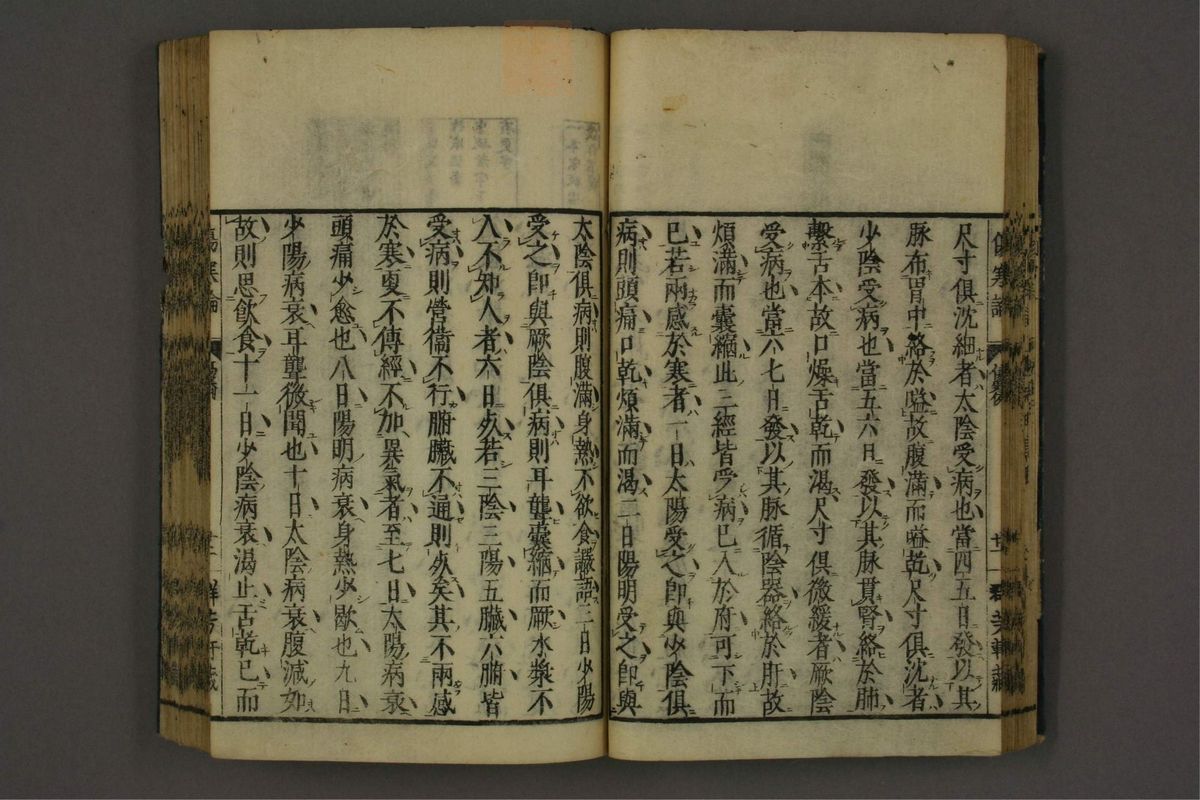 尺寸俱沈細者太陰受病也當四五日發以其
脉布胃中絡於嗌故腹滿而嗌乾尺寸俱沈者
少陰受病也當五六日發以其脉貫腎絡於肺
繫舌本故口燥舌乾而渴尺寸俱微緩者厥陰
受病也當六七日發以其脉循陰器絡於肝故
煩滿而囊縮此三經皆受病已入於府可下而
已若兩感於寒者一日太陽受之即與少陰俱
病則頭痛口乾煩滿而渴二日陽明受之即與
太陰俱病則腹滿身熱不欲食讝語三日少陽
受之即與厥陰俱病則耳聾囊縮而厥水漿不
入不知人者六日死若三陰三陽五臟六腑皆
受病則營衞不行腑臟不通則死矣其不兩感
於寒更不傳經不加異氣者至七日太陽病衰
頭痛少愈也八日陽明病衰身熱少歇也九日
少陽病衰耳聾微聞也十日太陰病衰腹減如
故則思飲食十一日少陰病衰渴止舌乾已而
傷寒論